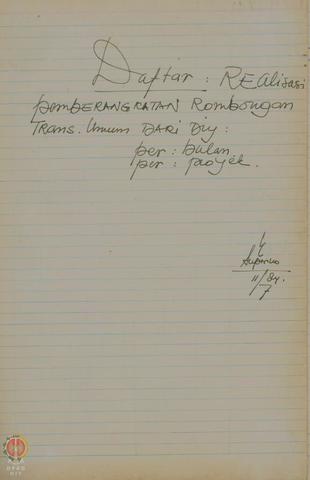 Daftar : REAlisasi
pemBERANGKATAN Rombongan
TRANS. Umum DARI Diy :
per : bulan
per : proyek.
Suparno
11/84.
7
DPAD
DIY